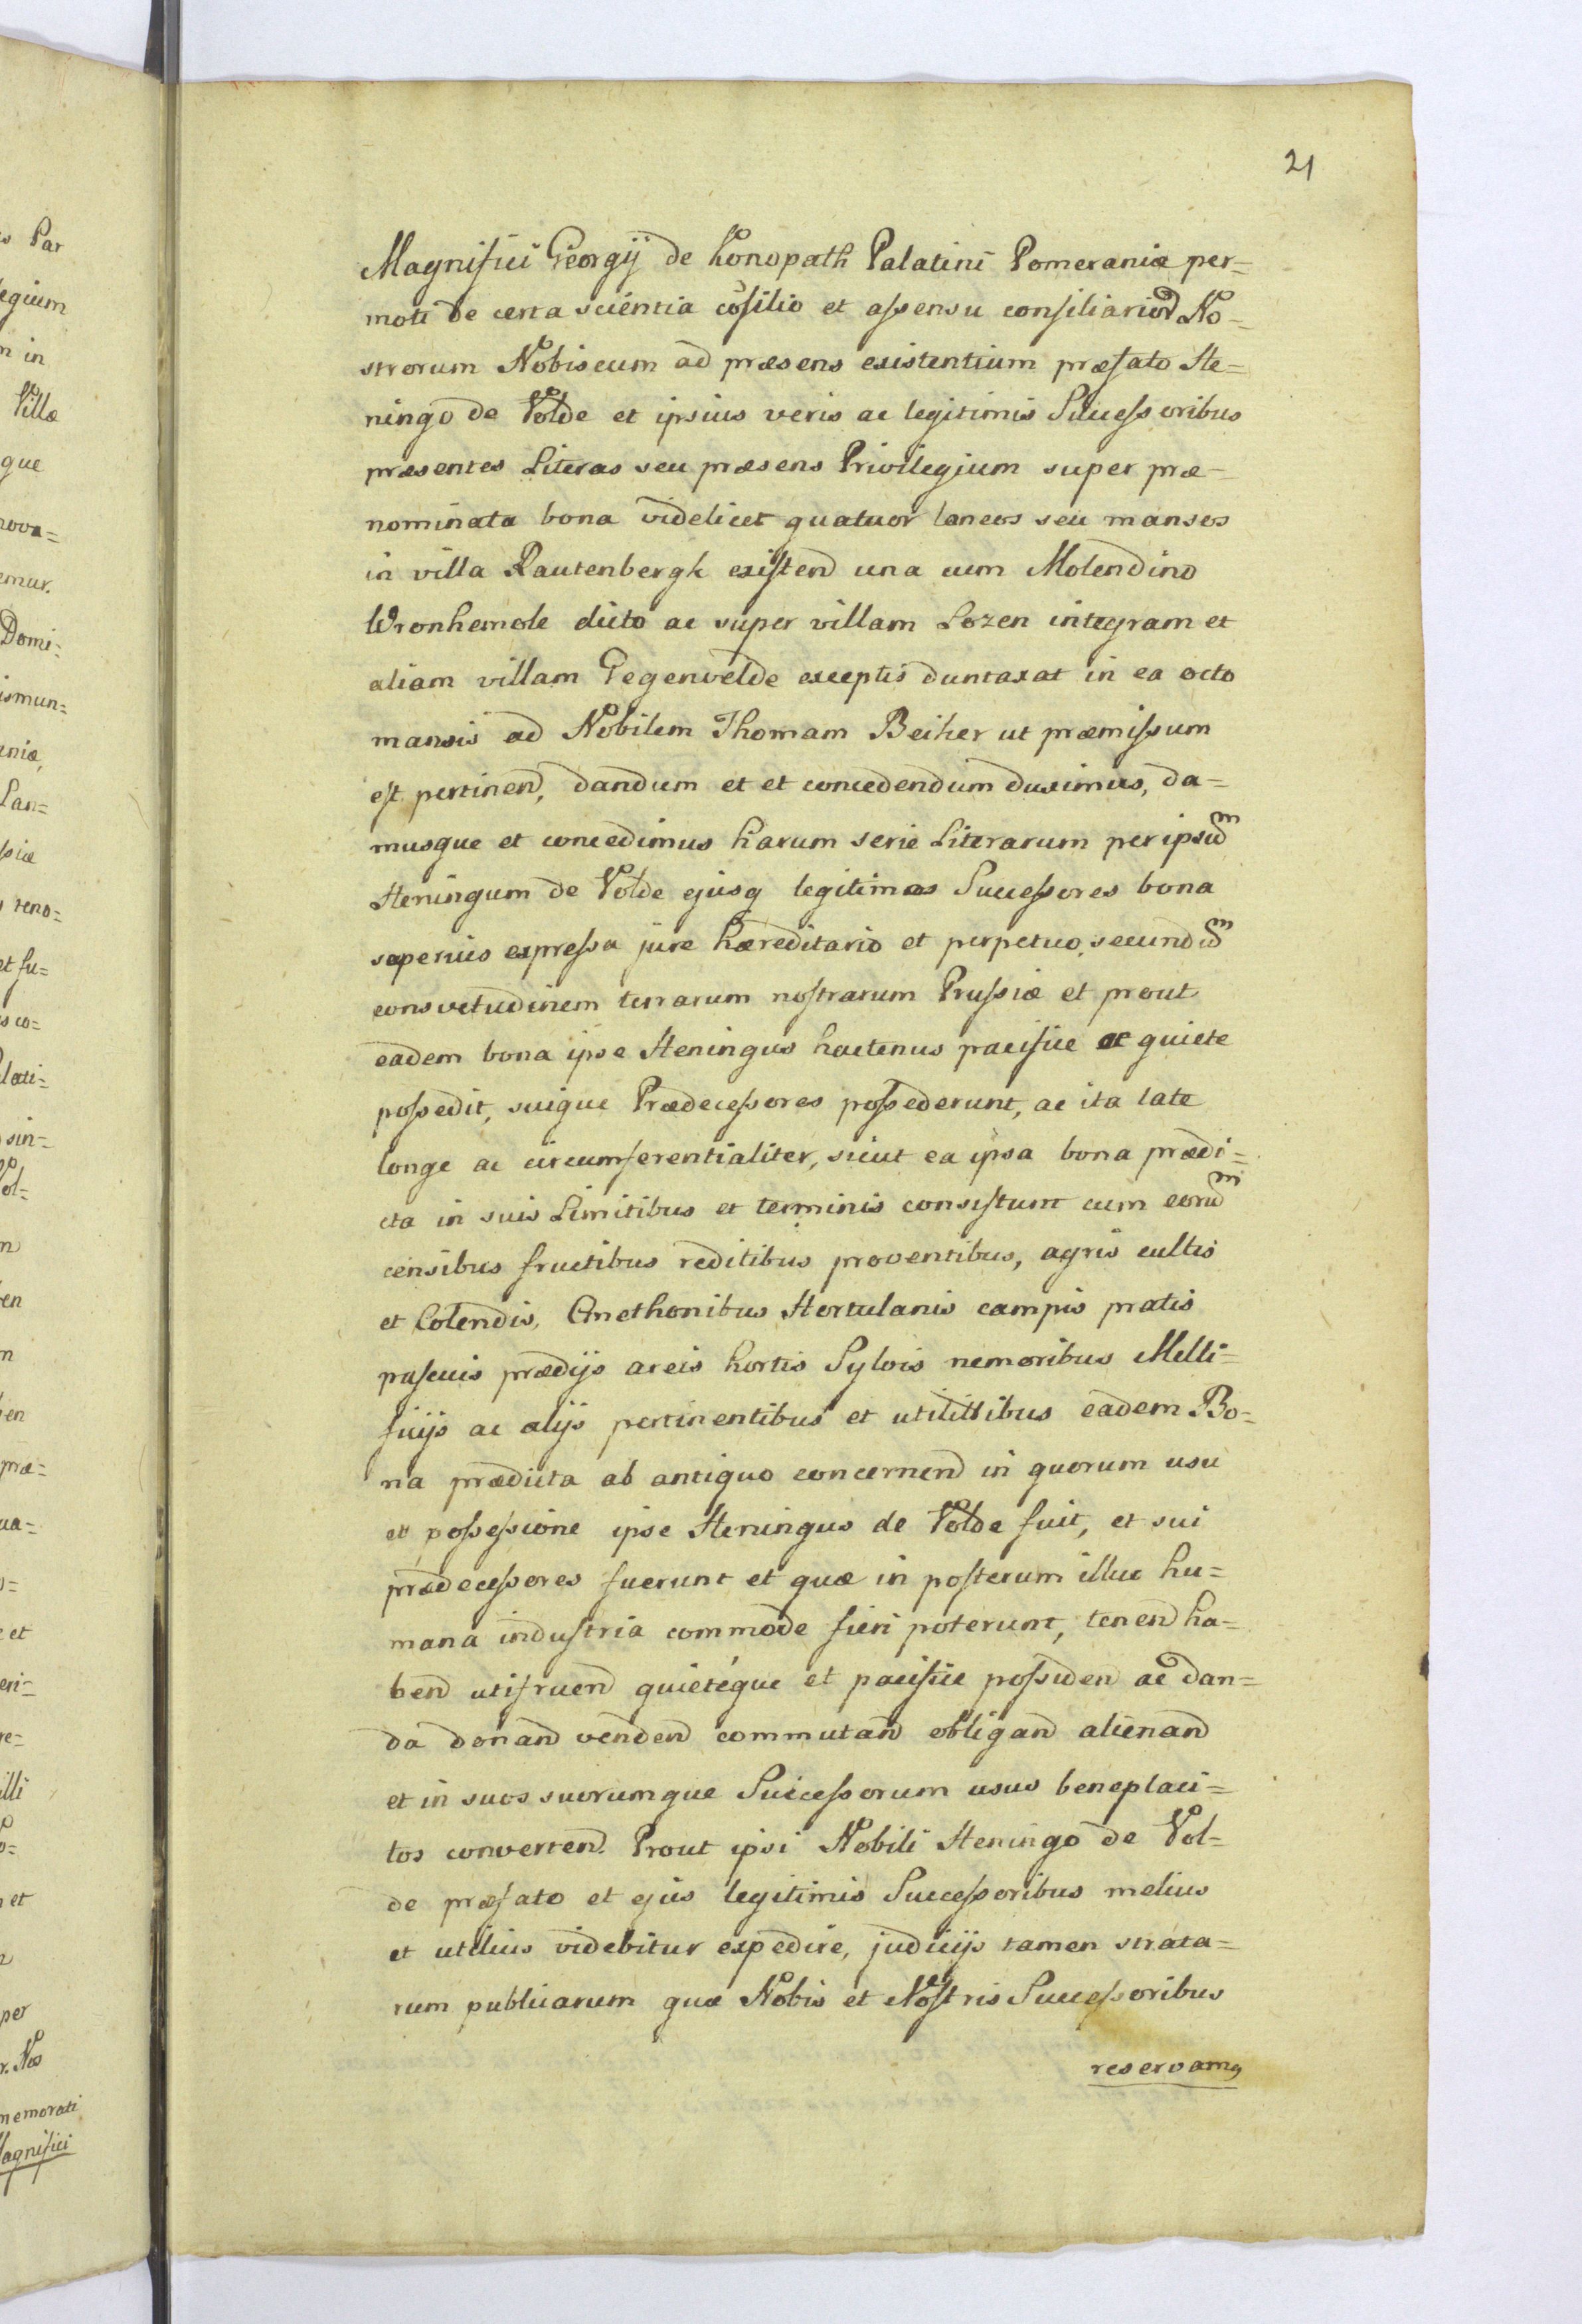 21
Magnifici Georgij de Konopath Palatini Pomeraniæ per=
moti de certa scientia cõsilio et assensu consiliariorũ No-
strorum Nobiscum ad præsens existentium præfato He=
ningo de Volde et ipsius veris ac legitimis Successoribus
præsentes Literas seu præsens Privilegium super præ-
nominata bona videlicet quatuor laneos seu mansos
in villa Rautenbergk existend una cum Molendino
Wronhemole dicto ac super villam Lozen integram et
aliam villam Gegenvelde exceptis duntaxat in ea octo
mansis ad Nobilem Thomam Beiher ut præmissum
est pertinend, dandum et et concedendum duximus, da=
musque et concedimus harum serie Literarum per ipsũm
Heningum de Volde ejusq legitimos Successores bona
superius expressa jure hæreditario et perpetuo, secundũm
consvetudinem terrarum nostrarum Prussiæ et prout
eadem bona ipse Heningus hactenus pacifice ac quiete
possedit, suique Prædecessores possederunt, ac ita late
longe ac circumferentialiter, sicut ea ipsa bona prædi=
cta in suis Limitibus et terminis consistunt cum eorũm
censibus fructibus reditibus proventibus, agris cultis
et Colendis, Cmethonibus Hortulanis campis pratis
pascuis prædijs areis hortis Sylvis nemoribus Melli=
ficijs ac alijs pertinentibus et utilittibus eadem Bo=
na prædicta ab antiquo concernend in quorum usu
et possessione ipse Heningus de Volde fuit, et sui
prædecessores fuerunt et quæ in posterum illuc hu=
mana industria commode fieri poterunt, tenend ha=
bend utifruend quietéque et pacifice possiden ac dan=
da donand vendend commutand obligand alienand
et in suos suorumque Successorum usus beneplaci=
tos convertend. Prout ipsi Nobili Heningo de Vol=
de præfato et ejus legitimis Successoribus melius
et utilius videbitur expedire, judicijs tamen strata=
rum publicarum quæ Nobis et Nostris Successoribus
reservamq